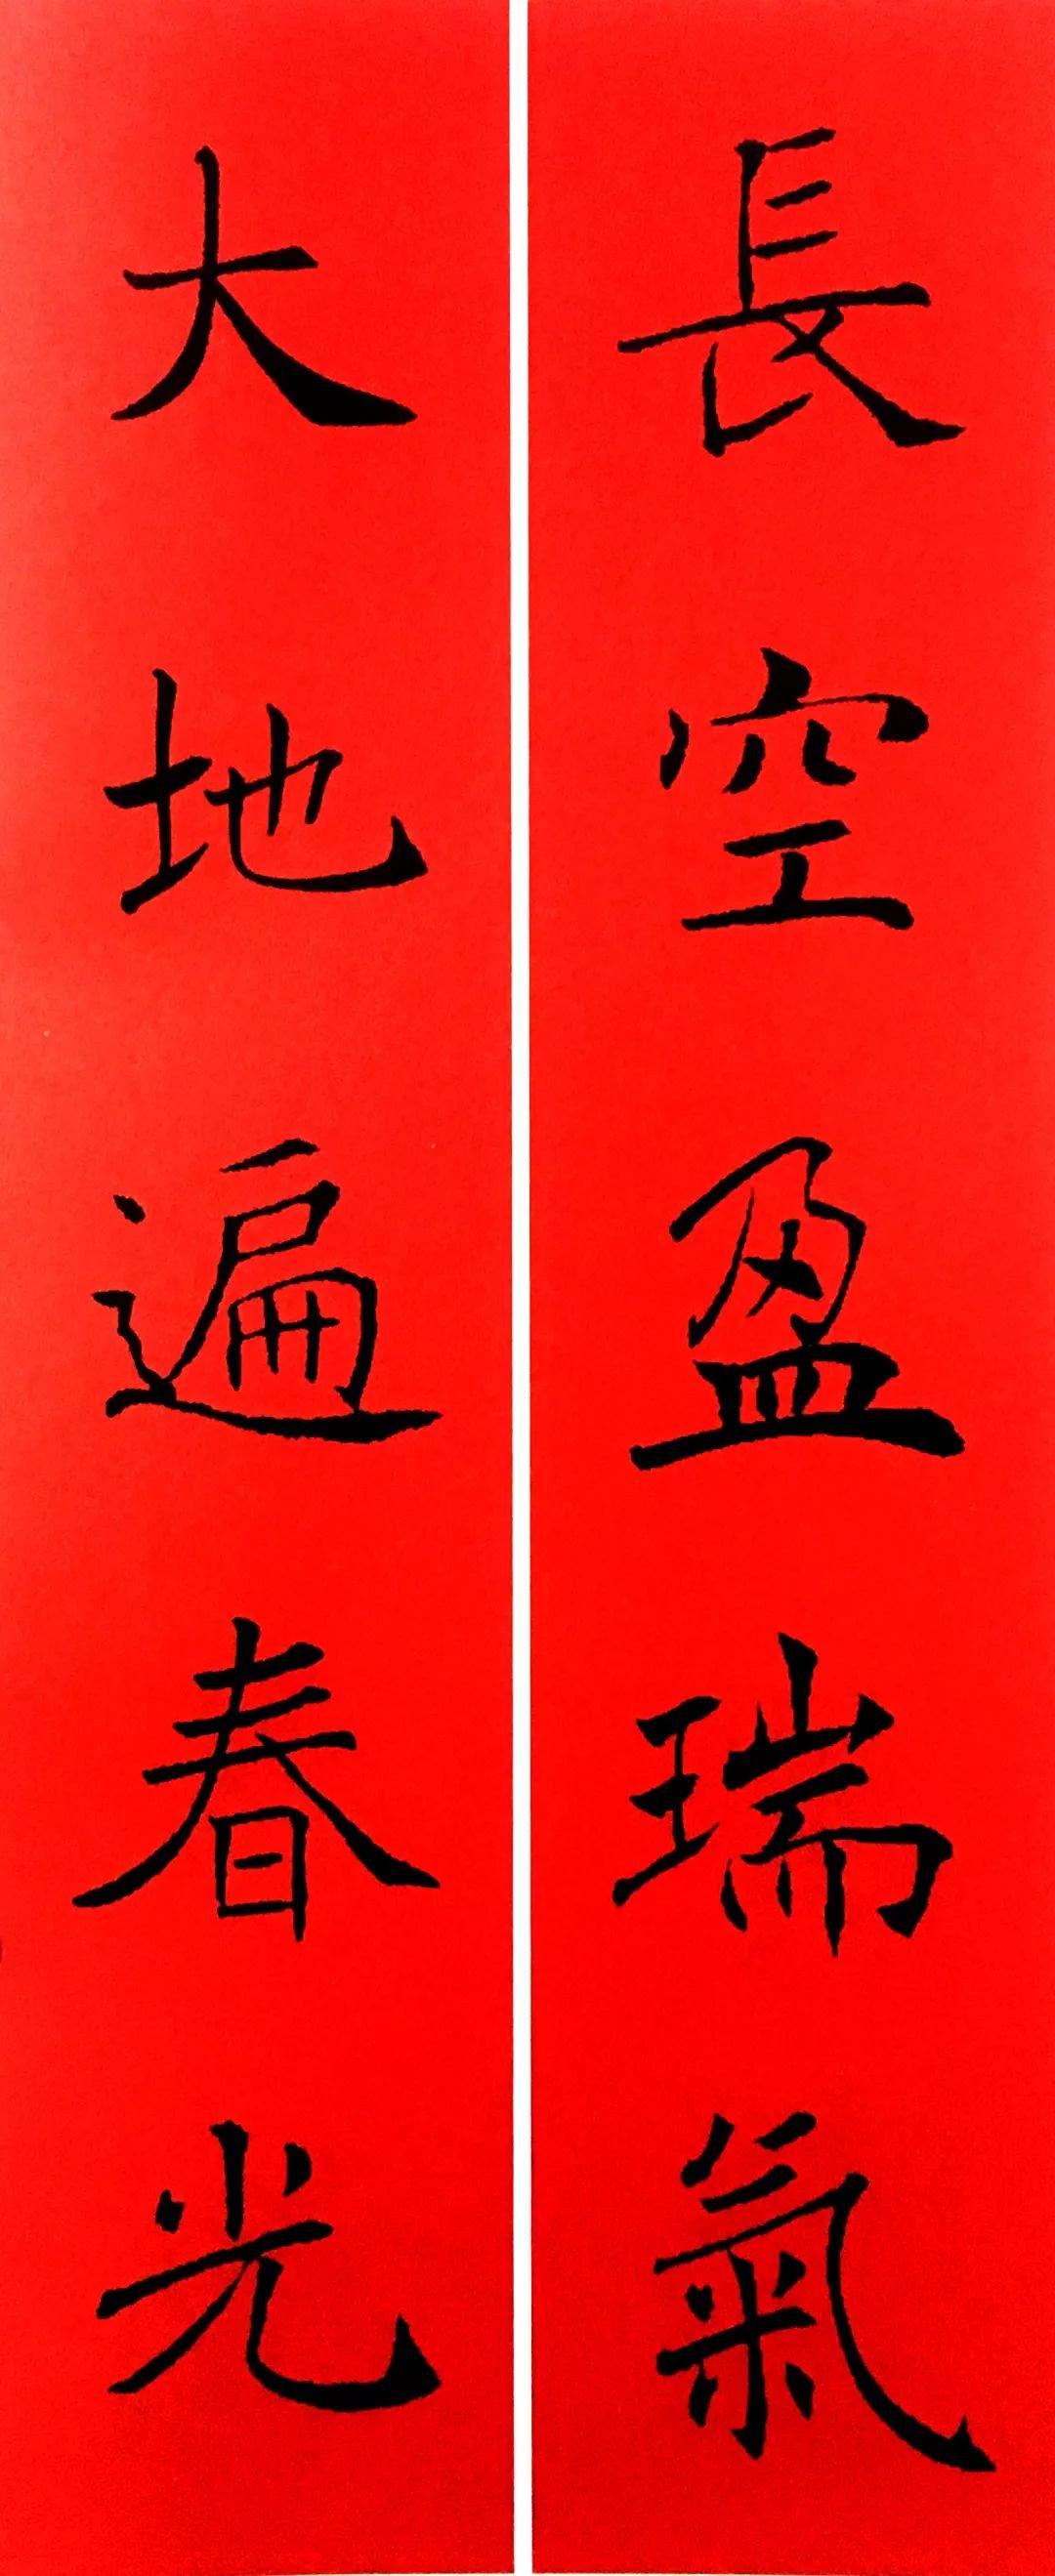 長空盈瑞氣
大地遍春光